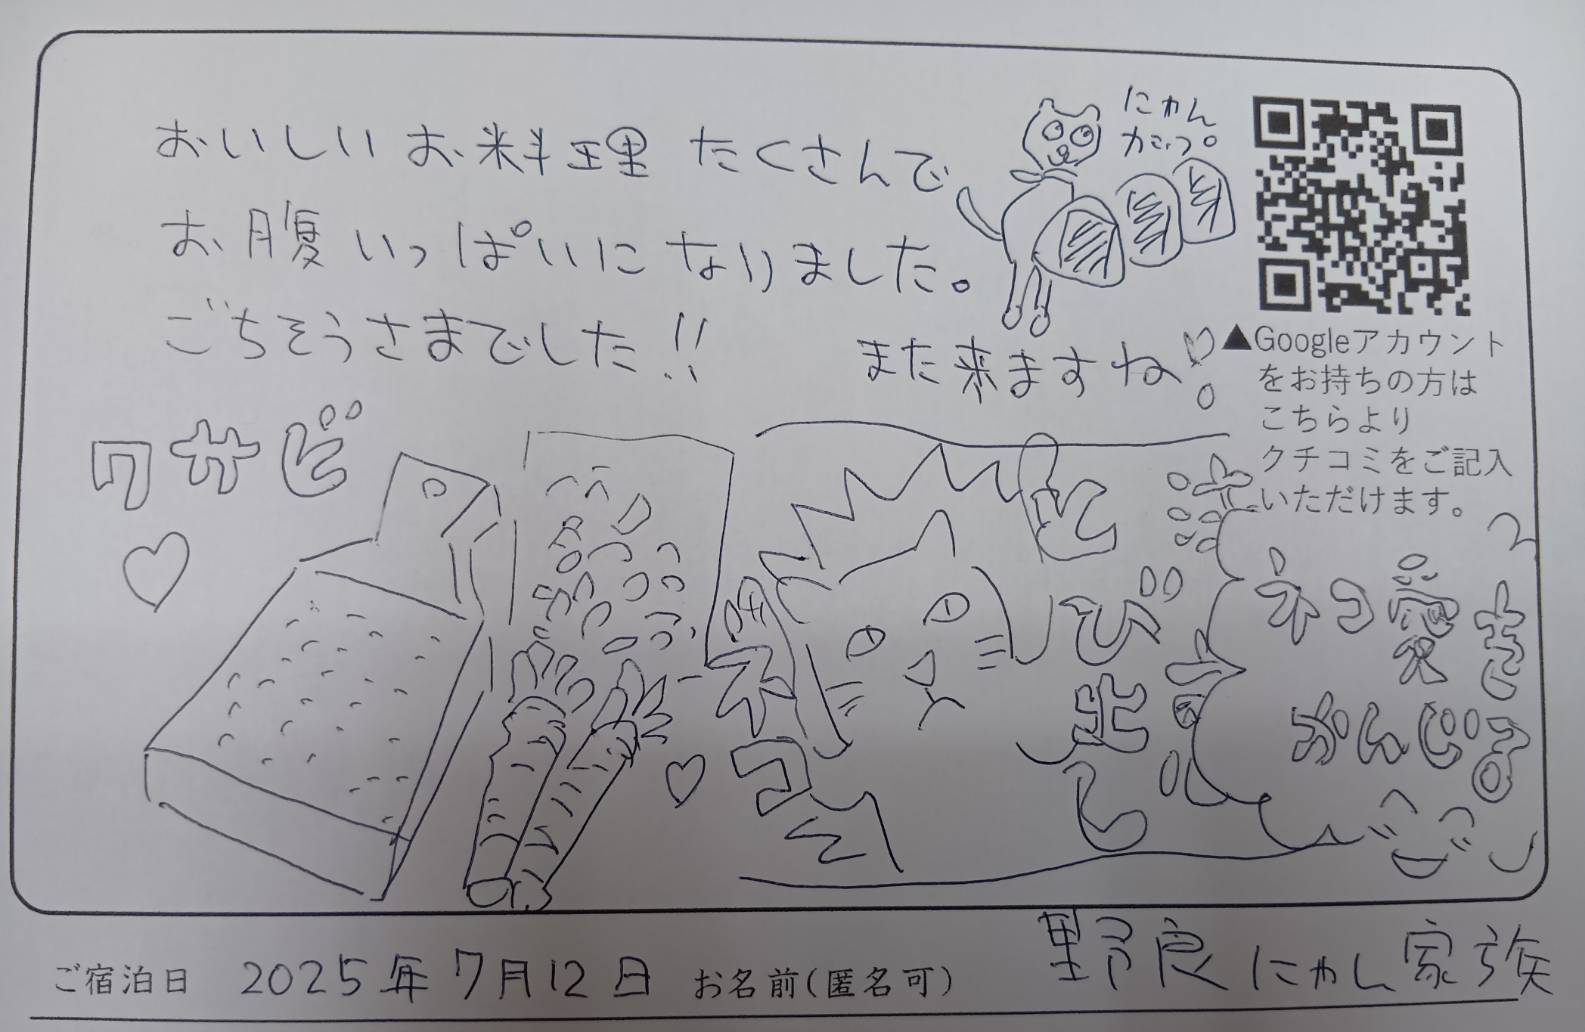 おいしいお料理たくさんで
お腹いっぱいになりました。
ごちそうさまでした!!
にゃん
また来ますね!
▲Googleアカウント
をお持ちの方は
こちらより
クチコミをご記入
いただけます。
ワサビ
ネコ
とび出し
ネコ愛を
かんじる
ご宿泊日 2025年7月12日 お名前(匿名可) 野良にゃん家族